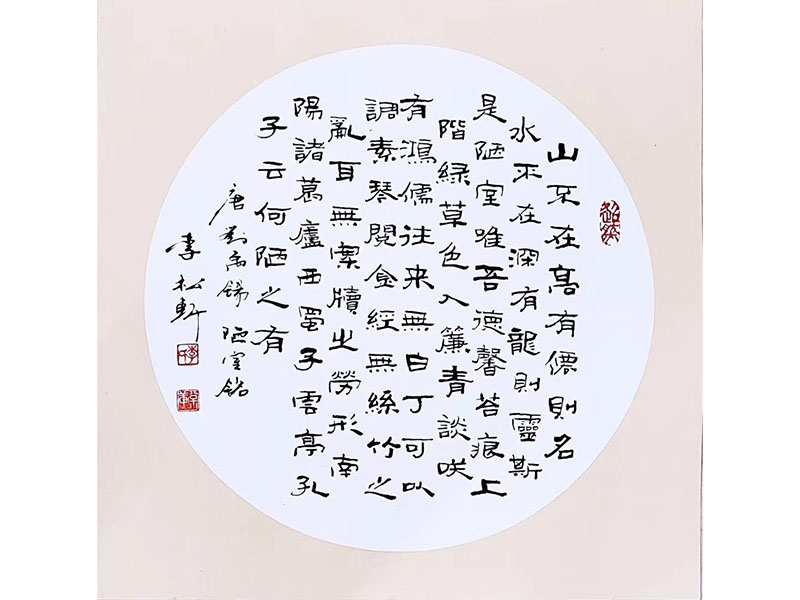 山不在髙有僊則名
水不在深有龍則靈斯
是陋室唯吾德馨苔痕上
階緑草色入簾青談咲
有鴻儒往来無白丁可以
調素琴閲金經無絲竹之
亂耳無案牘之勞形南
陽諸葛廬西蜀子雲亭孔
子云何陋之有
唐劉禹錫陋室銘
李松軒